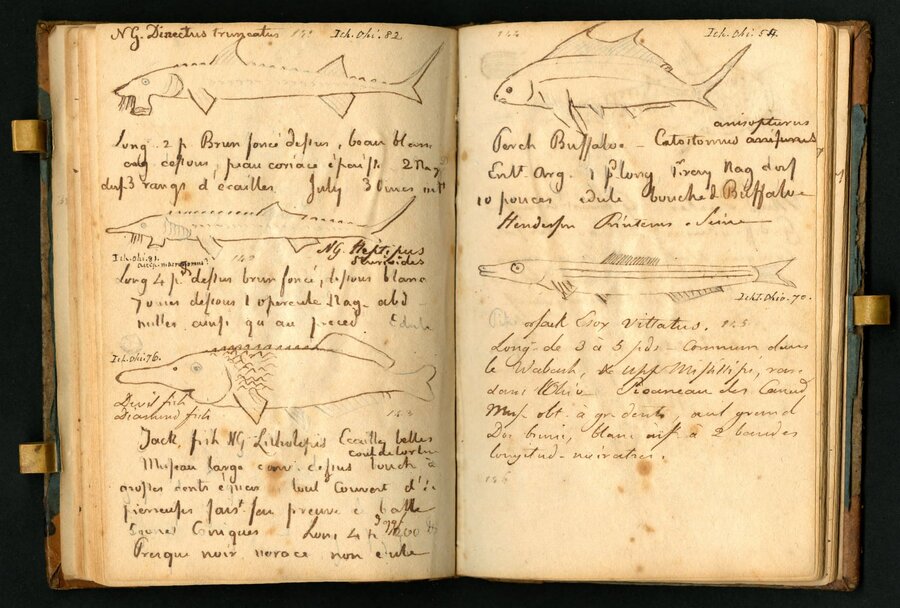 NG. Dinectus truncatus 141 Ich. Ohi. 82.
Long 2 p Brun foncé dessus, beau blanc
dessous, peau coriace épaisse
3 rangs d'ecailles. July
Ich. Ohi. 81.
NG. Heptipus
142
Long 4 p. dessus brun foncé, dessous blanc
dessous 1 opercule Nag. abd
milles. aussi qu au preced Edule
Ich. Ohi. 76.
Devil fish
Diamond fish
143
Jack fish NG. Litholepis Ecailles belles
Museau large conv. dessus bouche à
grosses dents egales tout couvert d'é
pierreuses fais.t feu preuve a balle
Coniques Long 4 p 400
Presque noir vorace non edule
144 Ich. Ohi. 54.
anisopturus
Perch Buffaloe – Catostomus anisurus
Ent.t Arg. 1 p long Tray Nag dors
10 pouces edule bouche d Buffaloe
Henderson Printems – Seine
Icht. Ohio. 70.
or Jack Esox Vittatus. 145
Long. de 3 à 5 pds – Commun dans
le Wabash, & upp Missisipi, rare
dans l'Ohio Piconeau des Canad
Mus. obt. a gr dents, aut grand
Dos bruni, blanc a 2 bandes
longitud. noiratres.
146